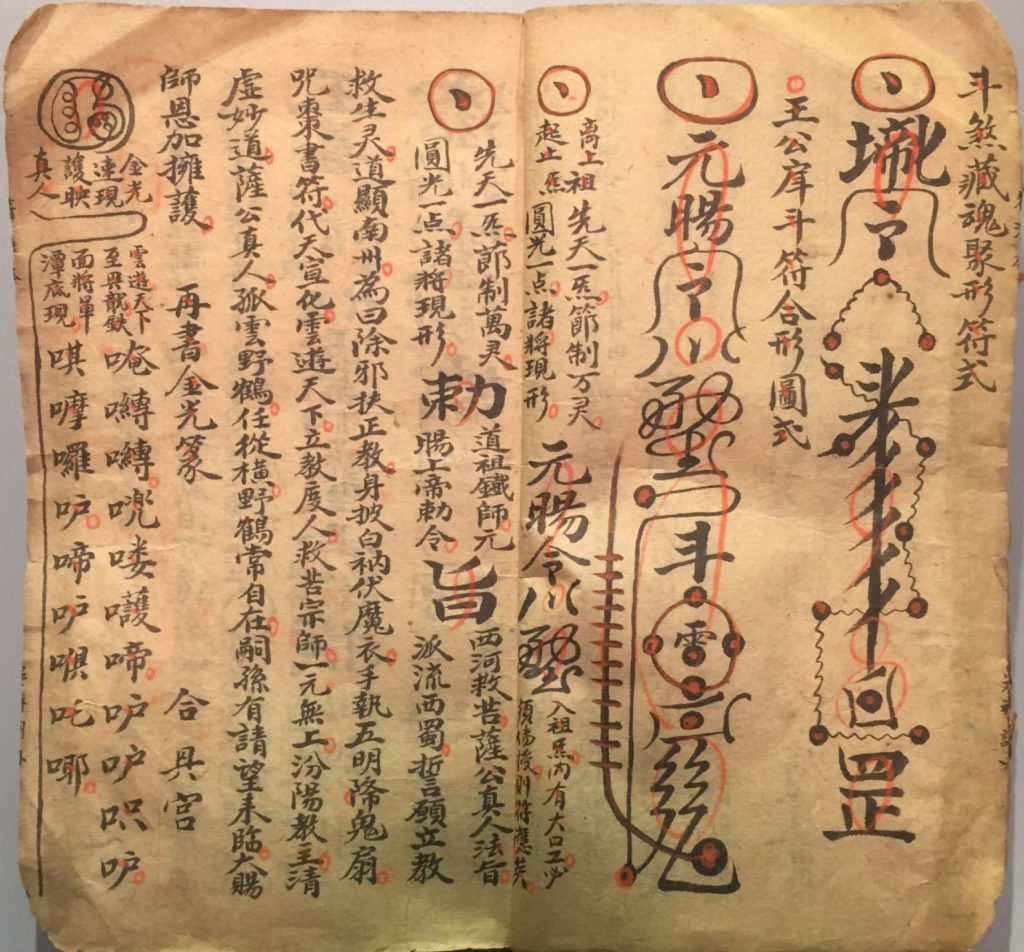 斗煞藏魂聚形符式
罡
王公庫斗符合形圖式
元暘
斗
雷
离上祖
起止炁
先天一炁節制万灵
圓光一点諸將現形
元暘令
入祖炁內有大口工必
須傳授則符應矣
先天一炁節制萬灵
圓光一点諸將現形
勅
道祖鐵師元
暘上帝勅令
旨
西河救苦薩公真人法旨
派流西蜀誓願立教
救生灵道顯南州為曰除邪扶正教身披白衲伏魔衣手執五明降鬼扇
咒棗書符代天宣化雲遊天下立教度人救苦宗師一元無上汾陽教主清
虛妙道薩公真人孤雲野鶴任從橫野鶴常自在嗣孫有請望来臨大賜
師恩加擁護 再書金光篆 合具宮
金光
速現
護映
真人
雲遊天下
至畏龍鉄
面將單
潭底現
唵嚩嚩吮喽嚄啼吣吣呮吣
唭嚤囉吣啼吣唭吒哪